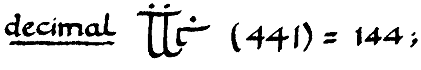 decimal (441) = 144;